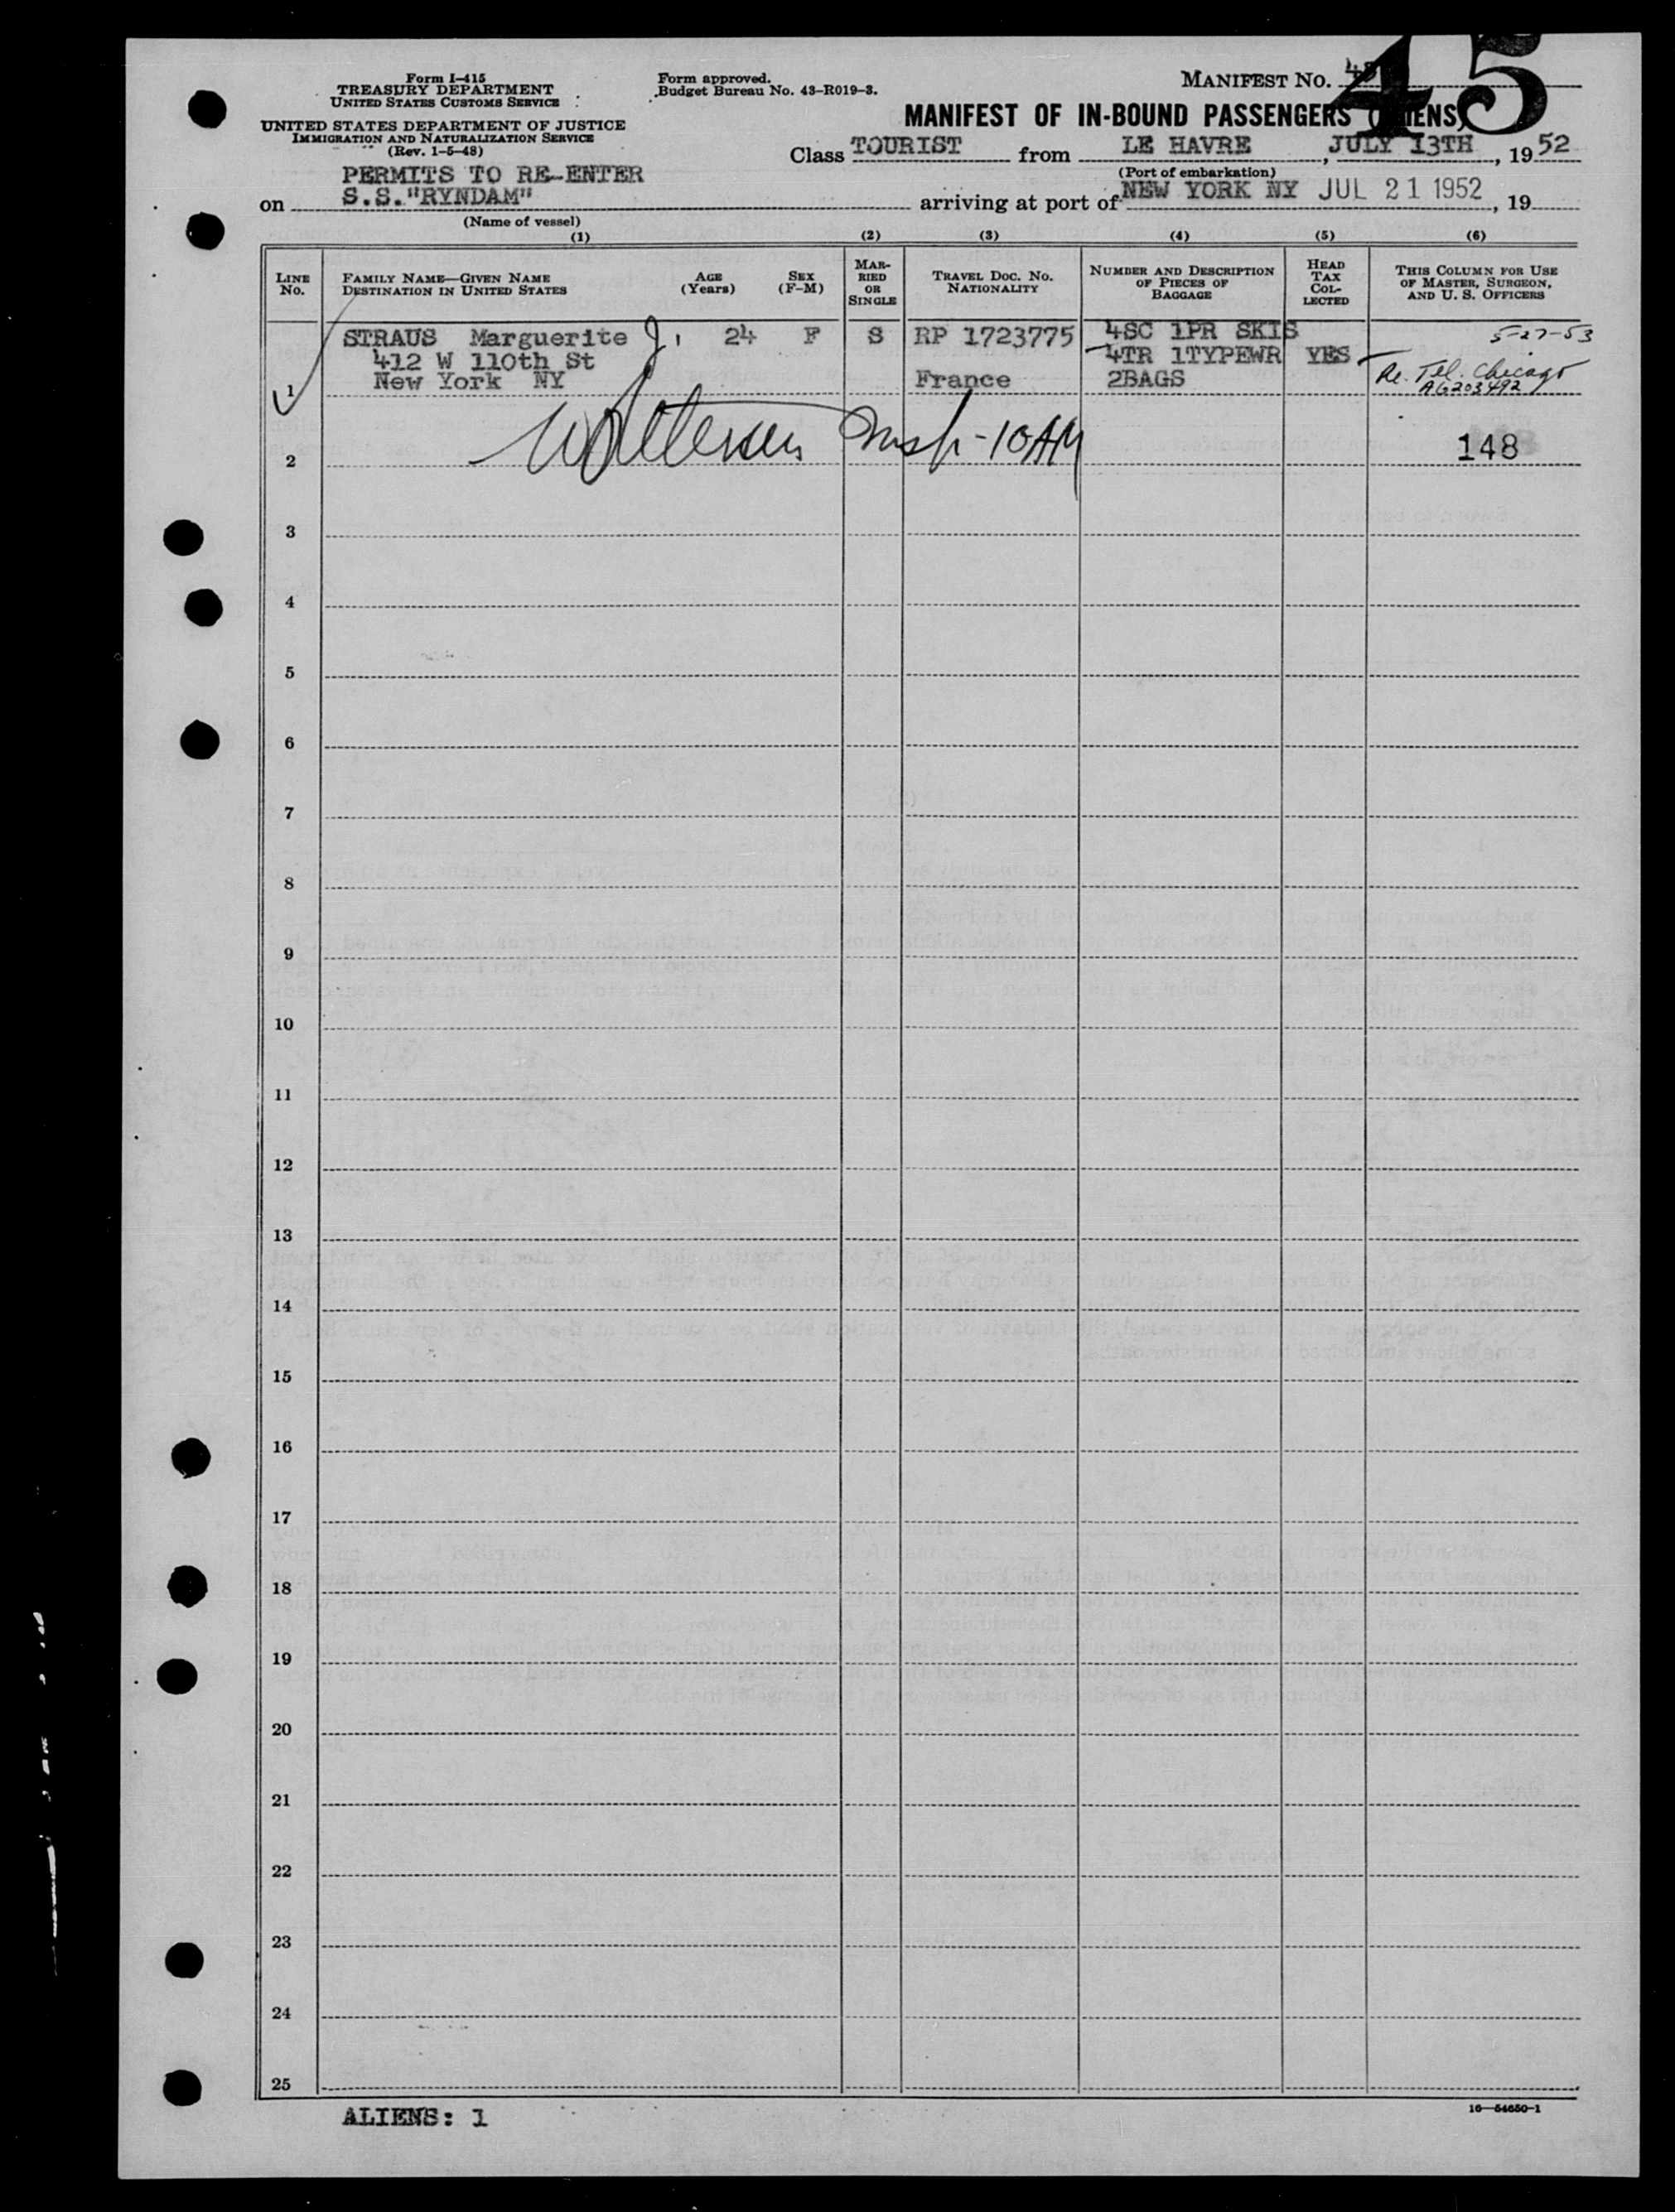 Form I-415
TREASURY DEPARTMENT
UNITED STATES CUSTOMS SERVICE
UNITED STATES DEPARTMENT OF JUSTICE
IMMIGRATION AND NATURALIZATION SERVICE
(Rev. 1-5-48)
Form approved.
Budget Bureau No. 43-R019-3.
MANIFEST NO.
45
MANIFEST OF IN-BOUND PASSENGERS
Class TOURIST from LE HAVRE, JULY 13TH, 1952
(Port of embarkation)
PERMITS TO RE-ENTER
on S.S."RYNDAM" arriving at port of NEW YORK NY JUL 21 1952, 19
(Name of vessel)
(1) (2) (3) (4) (5) (6)
LINE No.
FAMILY NAME—GIVEN NAME
DESTINATION IN UNITED STATES
AGE (Years)
SEX (F-M)
MARRIED OR SINGLE
TRAVEL DOC. NO.
NATIONALITY
NUMBER AND DESCRIPTION OF PIECES OF BAGGAGE
HEAD TAX COLLECTED
THIS COLUMN FOR USE OF MASTER, SURGEON, AND U. S. OFFICERS
STRAUS Marguerite J. 24 F S RP 1723775 4SC 1PR SKIS 5-27-53
412 W 110th St 4TR 1TYPEWR YES Re. Tel. Chicago
1 New York NY France 2BAGS AG203492
2 Insp-10AM 148
3
4
5
6
7
8
9
10
11
12
13
14
15
16
17
18
19
20
21
22
23
24
25
ALIENS: 1
16—54650-1